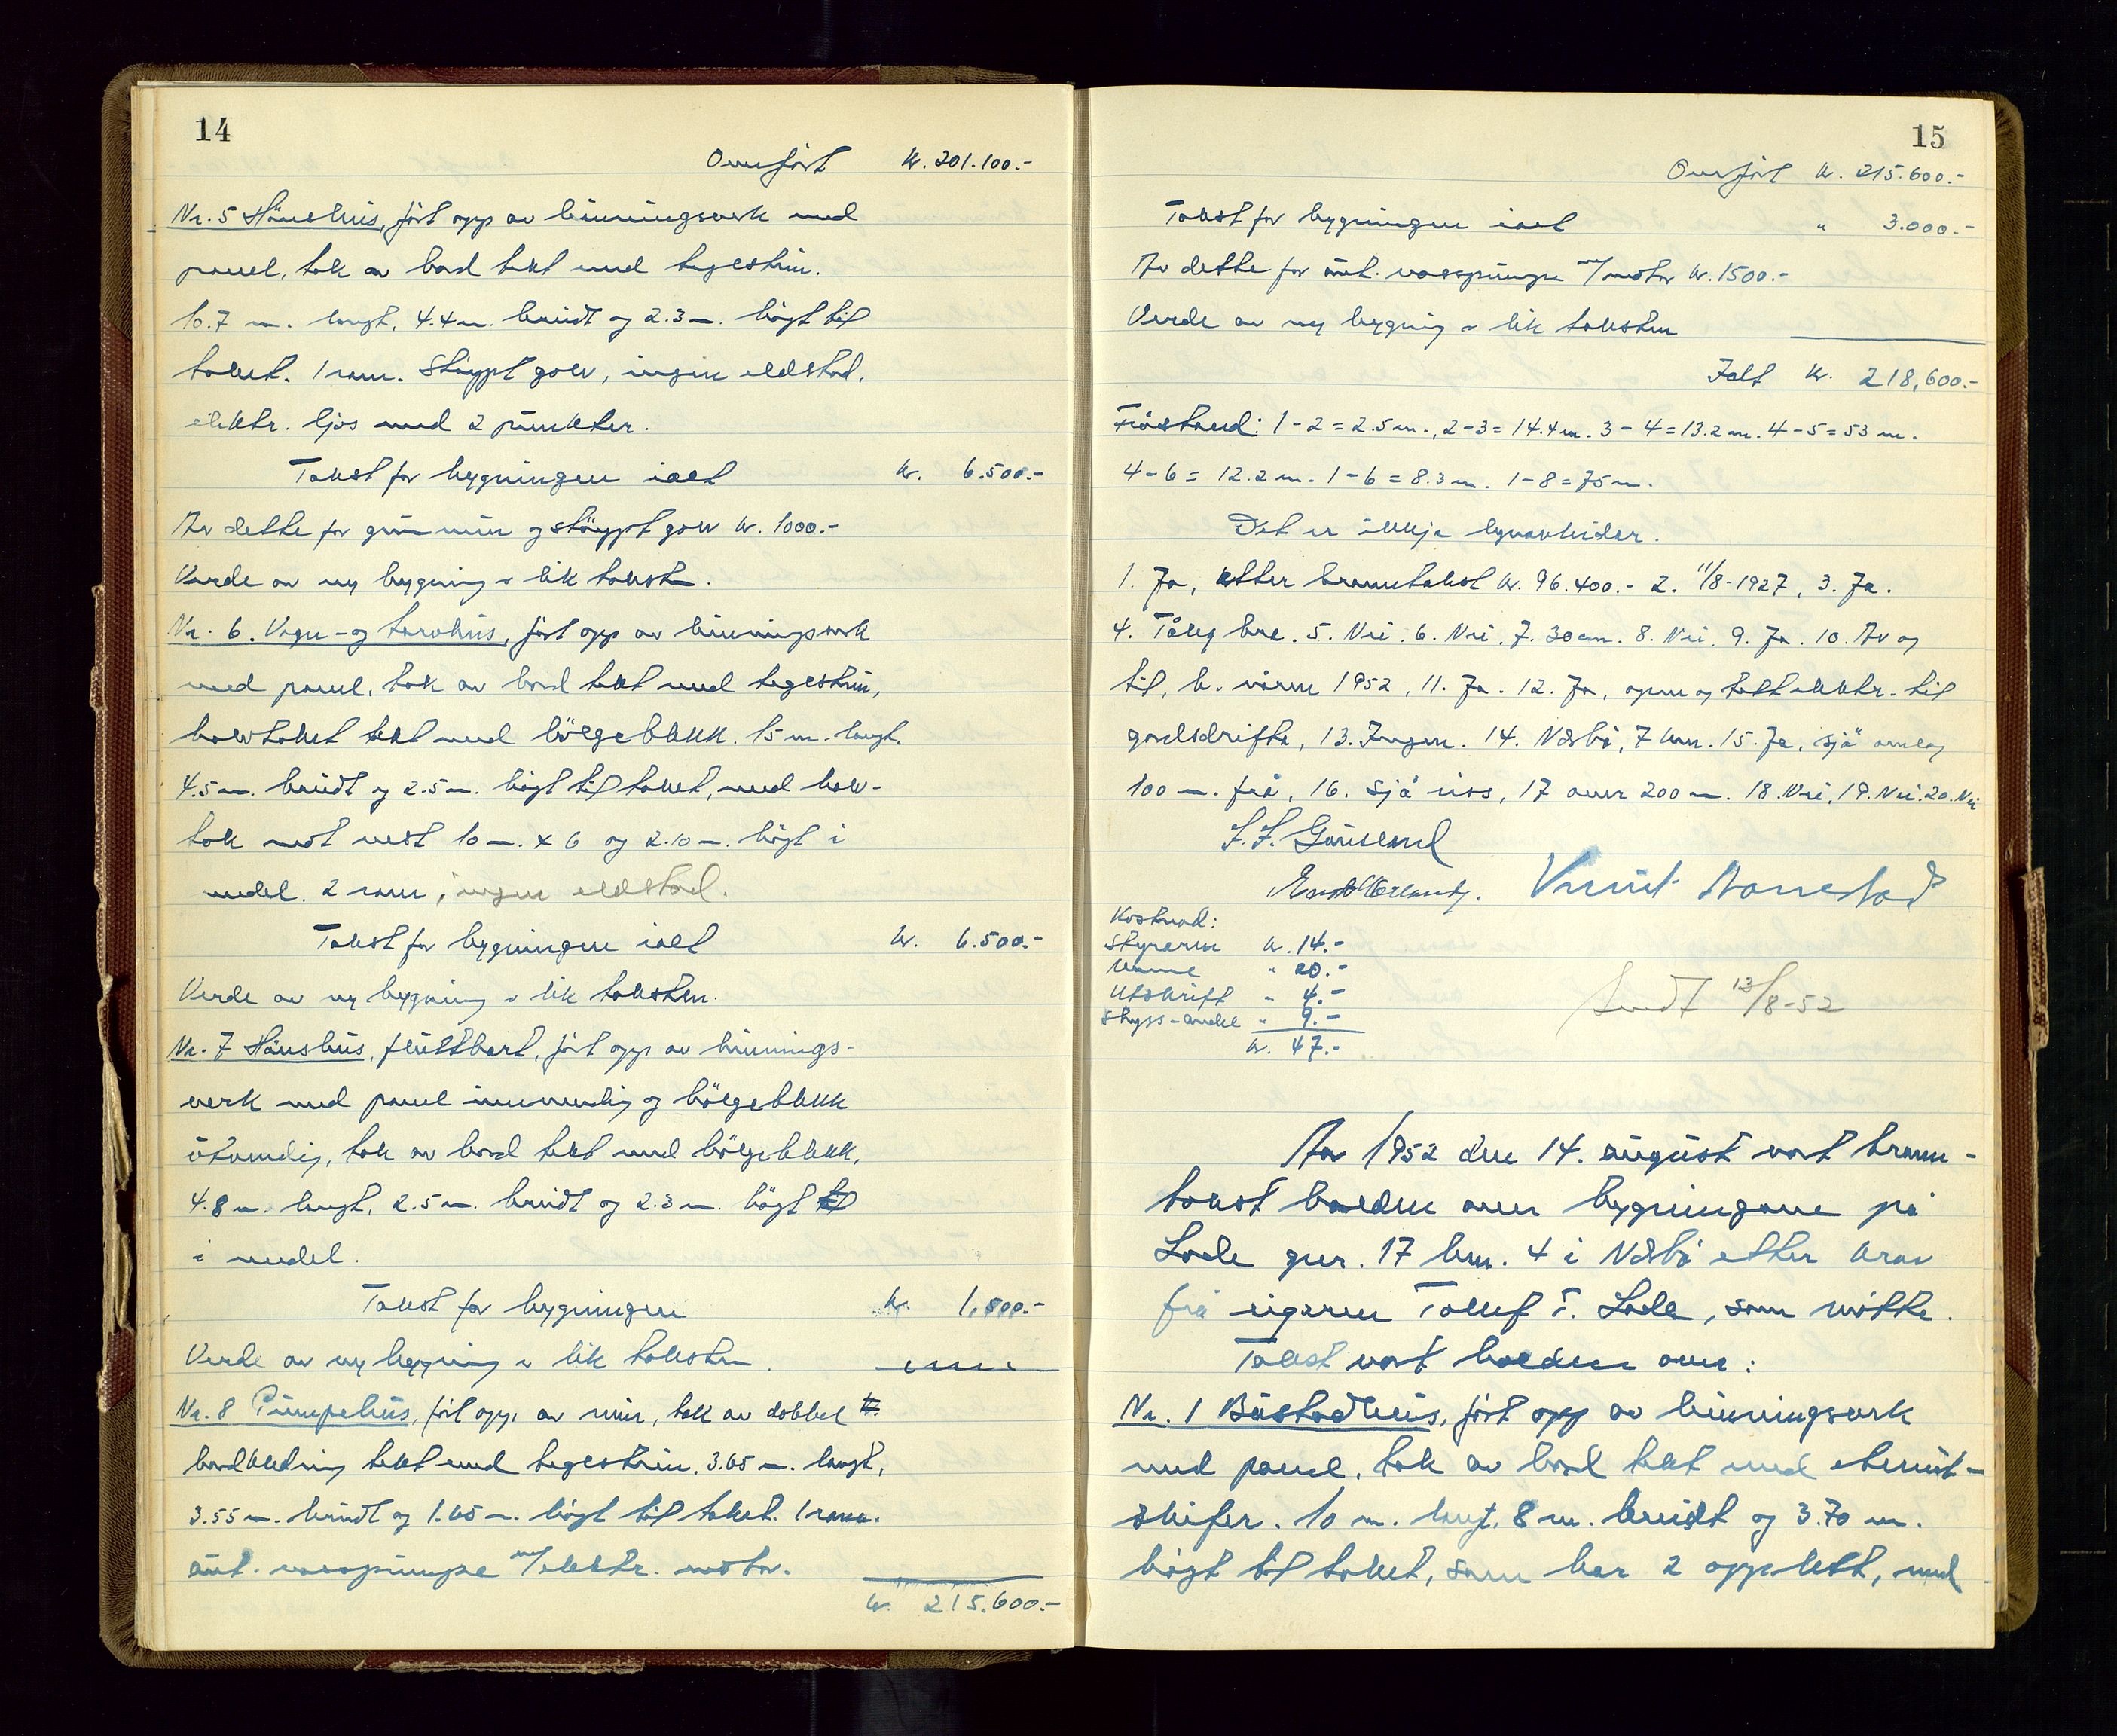 14
Overført Kr. 201.100.-
Nr. 5 Hönsehus, ført opp av binningsverk med
panel, tak av bord tekt med teglestein.
10.7 m. langt, 4.4 m. breidt og 2.3 m. högt til
taket. 1 rom. Støypt golv, ingen eldstad,
elektr. ljos med 2 punkter.
Takst for bygningen ialt Kr. 6.500.-
Av dette for grunnmur og støypt golv kr. 1000.-
Verde av ny bygning = lik taksten.
Nr. 6. Vogn- og torvhus, ført opp av binningsverk
med panel, tak av bord tekt med teglestein,
halvtaket tekt med bölgeblekk. 15 m. langt.
4.5 m. breidt og 2.5 m. högt til taket, med halv-
tak mot vest 10 m. x 6 og 2.10 m. högt i
medel. 2 rom, ingen eldstad.
Takst for bygningen ialt Kr. 6.500.-
Verde av ny bygning = lik taksten.
Nr. 7 Hönshus, fluttbart, ført opp av binnings-
verk med panel innvendig og bölgeblekk
utvendig, tak av bord tekt med bölgeblekk,
4.8 m. langt, 2.5 m. breidt og 2.3 m. högt
i medel.
Takst for bygningen Kr. 1,500.-
Verde av ny bygning = lik taksten.
Nr. 8 Pumpehus, ført opp av mur, tak av dobbel
bordkledning tekt med teglestein. 3.65 m. langt,
3.55 m. breidt og 1.65 m. högt til taket. 1 rom.
aut. vasspumpe m/elektr. motor.
Kr. 215.600.-
15
Overført Kr. 215.600.-
Takst for bygningen ialt " 3.000.-
Av dette for aut. vasspumpe m/motor kr. 1500.-
Verde av ny bygning = lik taksten
Ialt Kr. 218,600.-
Fråstand: 1-2 = 2.5 m., 2-3 = 14.4 m. 3-4 = 13.2 m. 4-5 = 53 m.
4-6 = 12.2 m. 1-6 = 8.3 m. 1-8 = 75 m.
Det er ikkje lynavleidar.
1. Ja, etter branntakst kr. 96.400.- 2. 11/8-1927, 3. Ja.
4. Tåleg bra. 5. Nei. 6. Nei. 7. 30 cm. 8. Nei. 9. Ja. 10. Av og
til, b. våren 1952, 11. Ja. 12. Ja, open og tett elektr. til
gardsdrifta, 13. Ingen. 14. Nærbø, 7 km. 15. Ja, sjå omlag
100 m. frå, 16. Sjå riss, 17 over 200 m. 18. Nei, 19. Nei. 20. Nei
Kostnad:
Styraren Kr. 14.-
Menne " 20.-
Utskrift " 4.-
Skyss-andel " 9.-
Kr. 47.-
Sendt 13/8-52
År 1952 den 14. august vart brann-
takst halden over bygningane på
Lode gnr. 17 bnr. 4 i Nærbø etter krav
frå eigaren Tollef T. Lode, som møtte.
Takst vart halden over:
Nr. 1 Bustadhus, ført opp av binningsverk
med panel, tak av bord tekt med eternit-
skifer. 10 m. langt, 8 m. breidt og 3.70 m.
högt til taket, som har 2 opplett, med